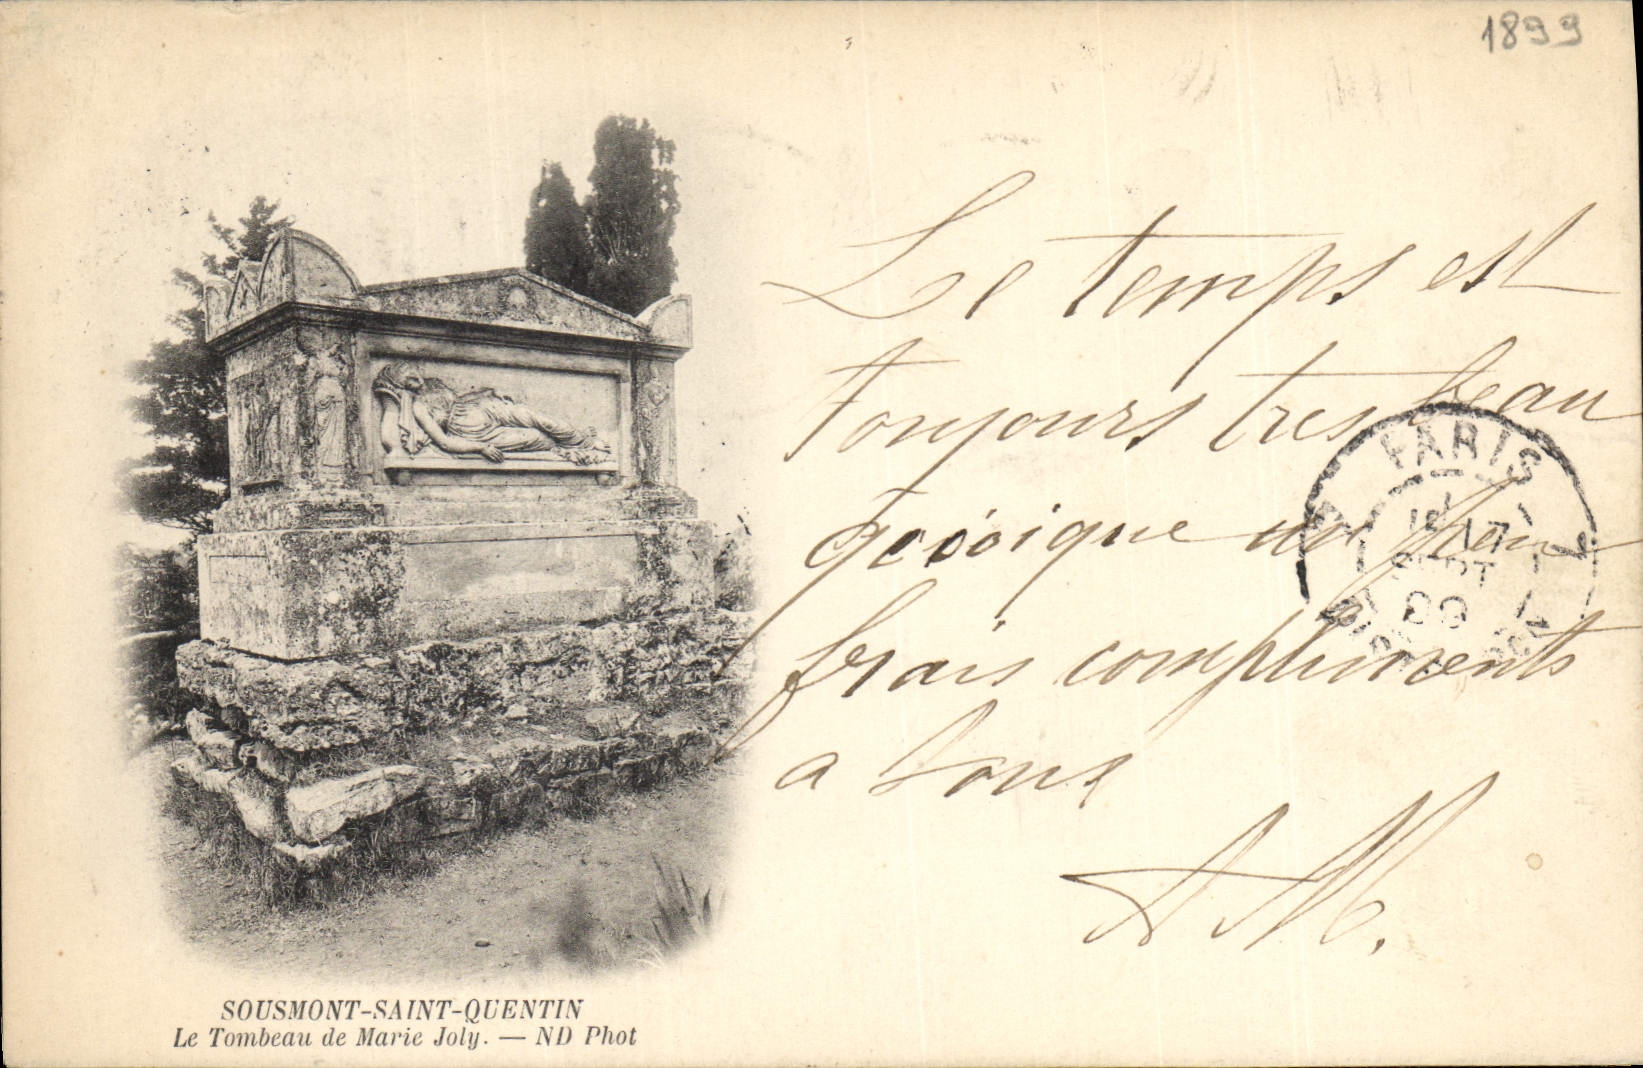 1899
Le temps est
toujours tres beau
quoique un peu
frais compliments
a tous
AM.
PARIS
17
SEPT
99
SOUSMONT-SAINT-QUENTIN
Le Tombeau de Marie Joly. — ND Phot